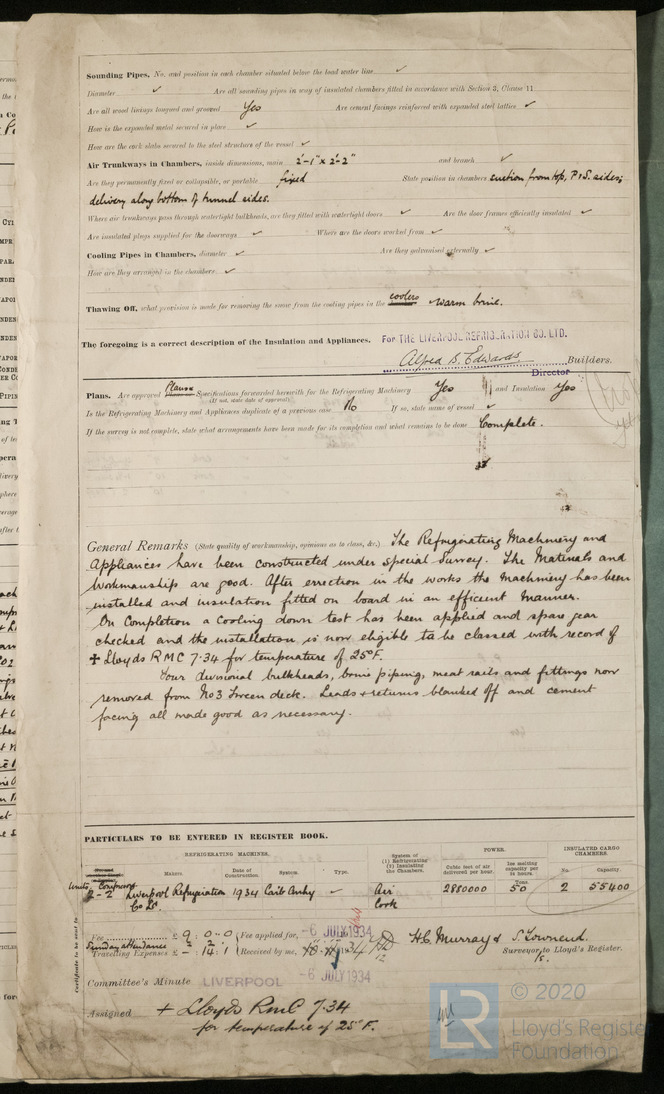 Sounding Pipes, No. and position in each chamber situated below the load water line ✓
Diameter ✓ Are all sounding pipes in way of insulated chambers fitted in accordance with Section 3, Clause 11
Are all wood linings tongued and grooved Yes Are cement facings reinforced with expanded steel lattice ✓
How is the expanded metal secured in place ✓
How are the cork slabs secured to the steel structure of the vessel ✓
Air Trunkways in Chambers, inside dimensions, main 2'-1" x 2'-2" and branch ✓
Are they permanently fixed or collapsible, or portable fixed State position in chambers suction from top, P & S. sides;
delivery along bottom of tunnel sides.
Where air trunkways pass through watertight bulkheads, are they fitted with watertight doors ✓ Are the door frames efficiently insulated ✓
Are insulated plugs supplied for the doorways ✓ Where are the doors worked from ✓
Cooling Pipes in Chambers, diameter ✓ Are they galvanised externally ✓
How are they arranged in the chambers ✓
Thawing Off, what provision is made for removing the snow from the cooling pipes in the coolers warm brine.
The foregoing is a correct description of the Insulation and Appliances.
For THE LIVERPOOL REFRIGERATION CO. LTD.
Alfred B. Edwards Builders.
Director
Plans. Are approved Plans Specifications forwarded herewith for the Refrigerating Machinery Yes and Insulation Yes
(If not, state date of approval)
Is the Refrigerating Machinery and Appliances duplicate of a previous case No If so, state name of vessel ✓
If the survey is not complete, state what arrangements have been made for its completion and what remains to be done Complete.
General Remarks (State quality of workmanship, opinions as to class, &c.) The Refrigerating Machinery and
Appliances have been constructed under special Survey. The Materials and
Workmanship are good. After errection in the works the Machinery has been
installed and insulation fitted on board in an efficient manner.
On Completion a Cooling down test has been applied and spare gear
checked and the installation is now eligible to be classed with record of
✠ Lloyds RMC 7.34 for temperature of 25°F.
Four divisional bulkheads, brine piping, meat rails and fittings now
removed from No3 Tween deck. Leads & returns blanked off and cement
facing all made good as necessary.
PARTICULARS TO BE ENTERED IN REGISTER BOOK.
REFRIGERATING MACHINES.
System of
(1) Refrigerating
(2) Insulating
the Chambers.
POWER.
INSULATED CARGO
CHAMBERS.
Makers. Date of Construction. System. Type. Cubic feet of air delivered per hour. Ice melting capacity per 24 hours. Tons No. Capacity
Units Compressors
2 - 2 Liverpool Refrigeration 1934 Carb Anhy ✓ Air 2880000 50 2 55400
Co Ld. Cork
Fee £ 9 : 0 : 0 Fee applied for, -6 JULY 1934
Sunday attendance 2 : 2
Travelling Expenses £ - 14 : 1 Received by me,
H.C. Murray & S. Townend.
Surveyor to Lloyd's Register.
Committee's Minute LIVERPOOL -6 JULY 1934
Assigned + Lloyds RMC 7.34
for temperature of 25° F.
Certificate to be sent to
LR
© 2020
Lloyd's Register
Foundation